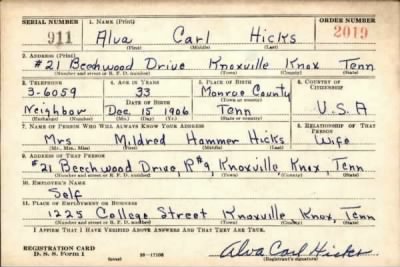 SERIAL NUMBER 1. NAME (Print) ORDER NUMBER
911 Alva Carl Hicks 2019
(First) (Middle) (Last)
2. ADDRESS (Print)
#21 Beechwood Drive Knoxville Knox Tenn
(Number and street or R. F. D. number) (Town) (County) (State)
3. TELEPHONE 4. AGE IN YEARS 5. PLACE OF BIRTH 6. COUNTRY OF CITIZENSHIP
3-6059 33 Monroe County
DATE OF BIRTH (Town or county)
Neighbor Dec, 15 1906 Tenn U.S.A
(Exchange) (Number) (Mo.) (Day) (Yr.) (State or country)
7. NAME OF PERSON WHO WILL ALWAYS KNOW YOUR ADDRESS 8. RELATIONSHIP OF THAT PERSON
Mrs Mildred Hammer Hicks Wife
(Mr., Mrs., Miss) (First) (Middle) (Last)
9. ADDRESS OF THAT PERSON
#21 Beechwood Drive, R#9 Knoxville Knox, Tenn
(Number and street or R. F. D. number) (Town) (County) (State)
10. EMPLOYER'S NAME
Self
11. PLACE OF EMPLOYMENT OR BUSINESS
1225 College Street Knoxville Knox, Tenn
(Number and street or R. F. D. number) (Town) (County) (State)
I AFFIRM THAT I HAVE VERIFIED ABOVE ANSWERS AND THAT THEY ARE TRUE.
REGISTRATION CARD
D. S. S. Form 1 Alva Carl Hicks
(over) (Registrant's signature)